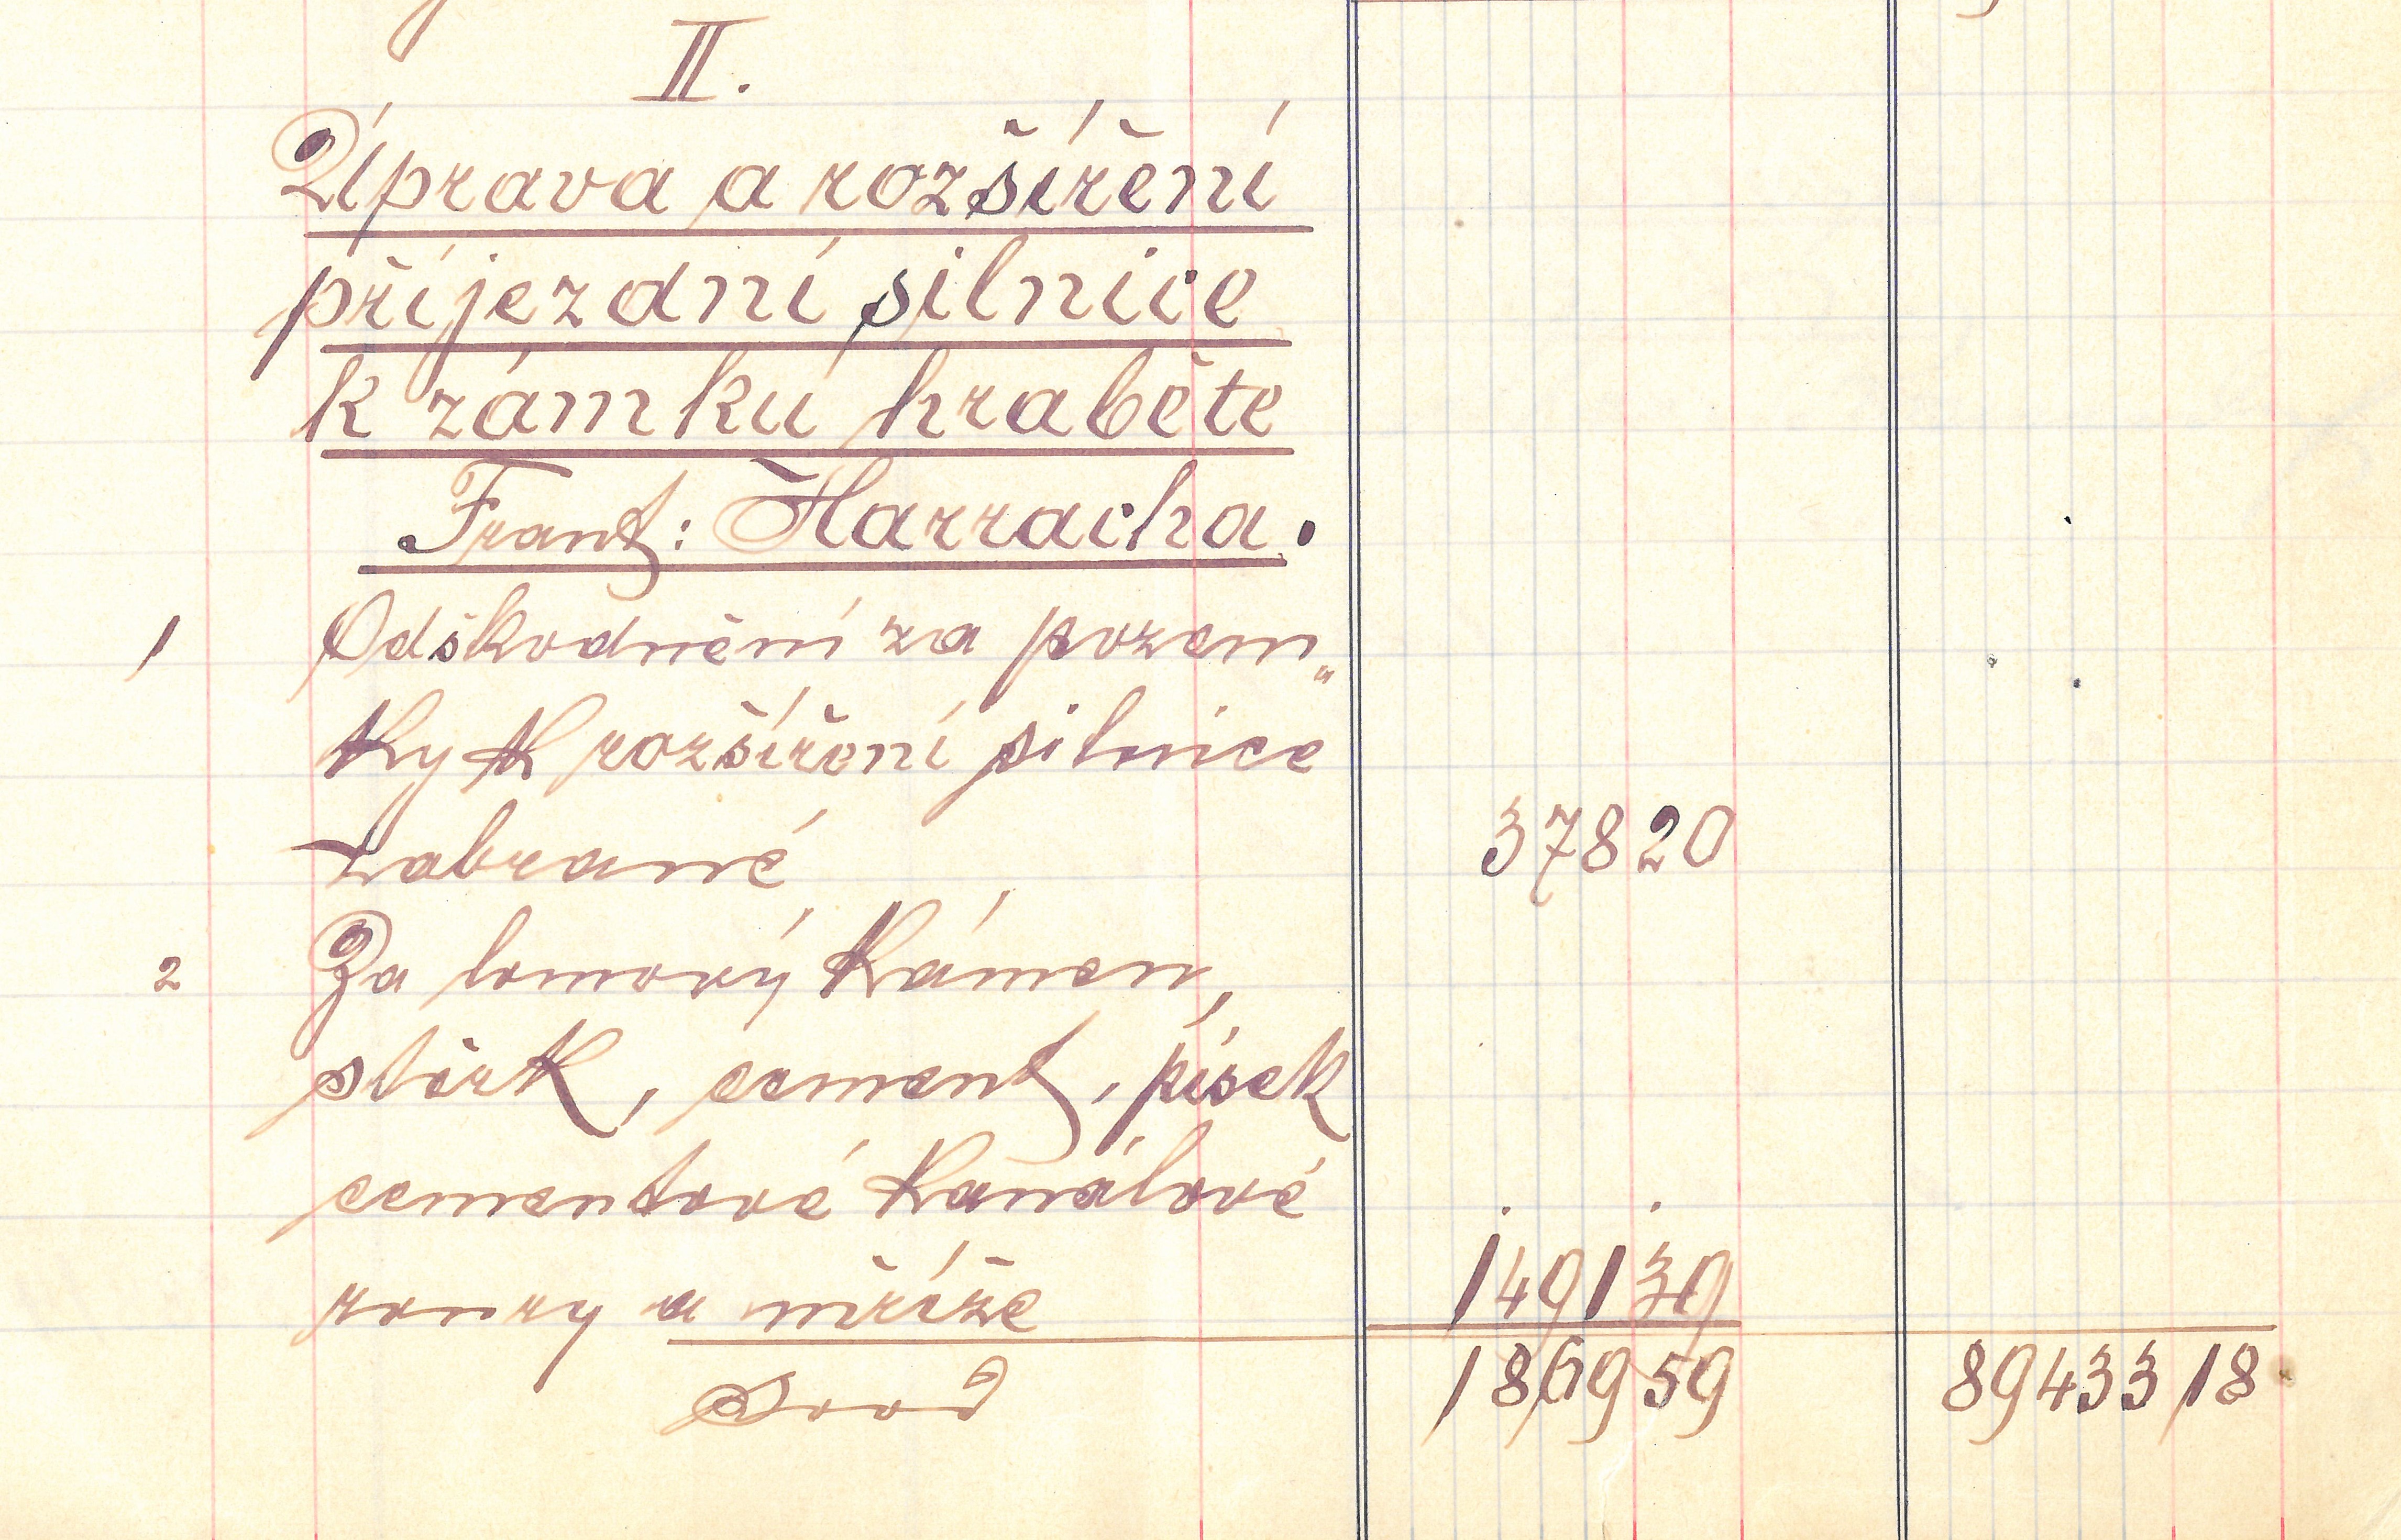 II.
Úprava a rozšíření
příjezdní silnice
k zámku hraběte
Frant: Harracha.
1 Odškodnění za pozem„
ky k rozšíření silnice
zabrané 378 20
2 Za lomový kámen,
štěrk, cement, písek
cementové kanálové
roury a mříže 1491 39
Svod 1869 59 89433 18